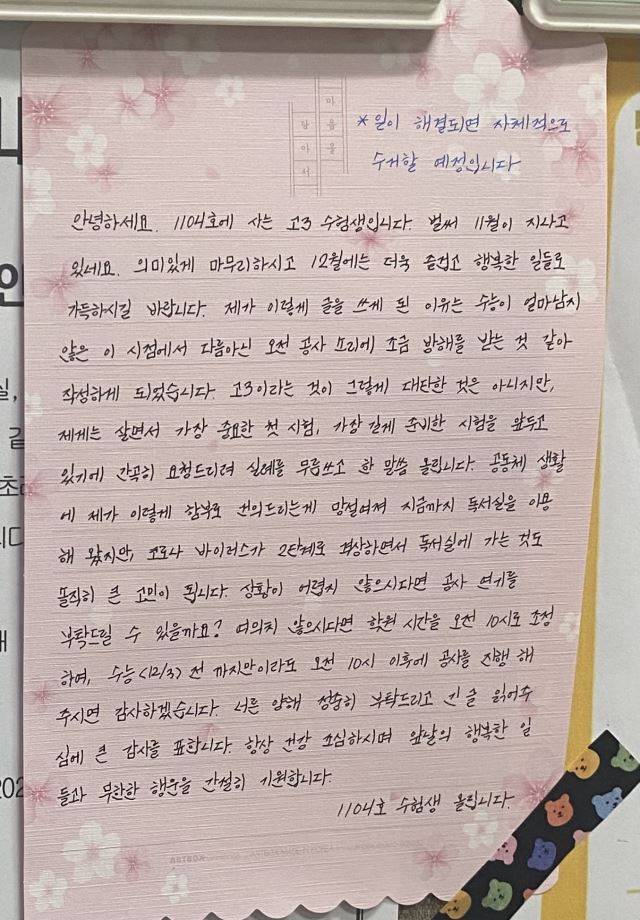 마
음
을
담
아
서
*일이 해결되면 자체적으로
수거할 예정입니다
안녕하세요. 1104호에 사는 고3 수험생입니다. 벌써 11월이 지나고
있네요. 의미있게 마무리하시고 12월에는 더욱 즐겁고 행복한 일들로
가득하시길 바랍니다. 제가 이렇게 글을 쓰게 된 이유는 수능이 얼마남지
않은 이 시점에서 다름아닌 오전 공사 소리에 조금 방해를 받는 것 같아
작성하게 되었습니다. 고3이라는 것이 그렇게 대단한 것은 아니지만,
제게는 살면서 가장 중요한 첫 시험, 가장 길게 준비한 시험을 앞두고
있기에 간곡히 요청드리려 실례를 무릅쓰고 한 말씀 올립니다. 공동체 생활
에 제가 이렇게 함부로 건의드리는게 망설여져 지금까지 독서실을 이용
해 왔지만, 코로나 바이러스가 2단계로 격상하면서 독서실에 가는 것도
솔직히 큰 고민이 됩니다. 상황이 어렵지 않으시다면 공사 연기를
부탁드릴 수 있을까요? 여의치 않으시다면 학원 시간을 오전 10시로 조정
하여, 수능(12/3) 전 까지만이라도 오전 10시 이후에 공사를 진행 해
주시면 감사하겠습니다. 너른 양해 정중히 부탁드리고 긴 글 읽어주
심에 큰 감사를 표합니다. 항상 건강 조심하시며 앞날의 행복한 일
들과 무한한 행운을 간절히 기원합니다.
1104호 수험생 올립니다.